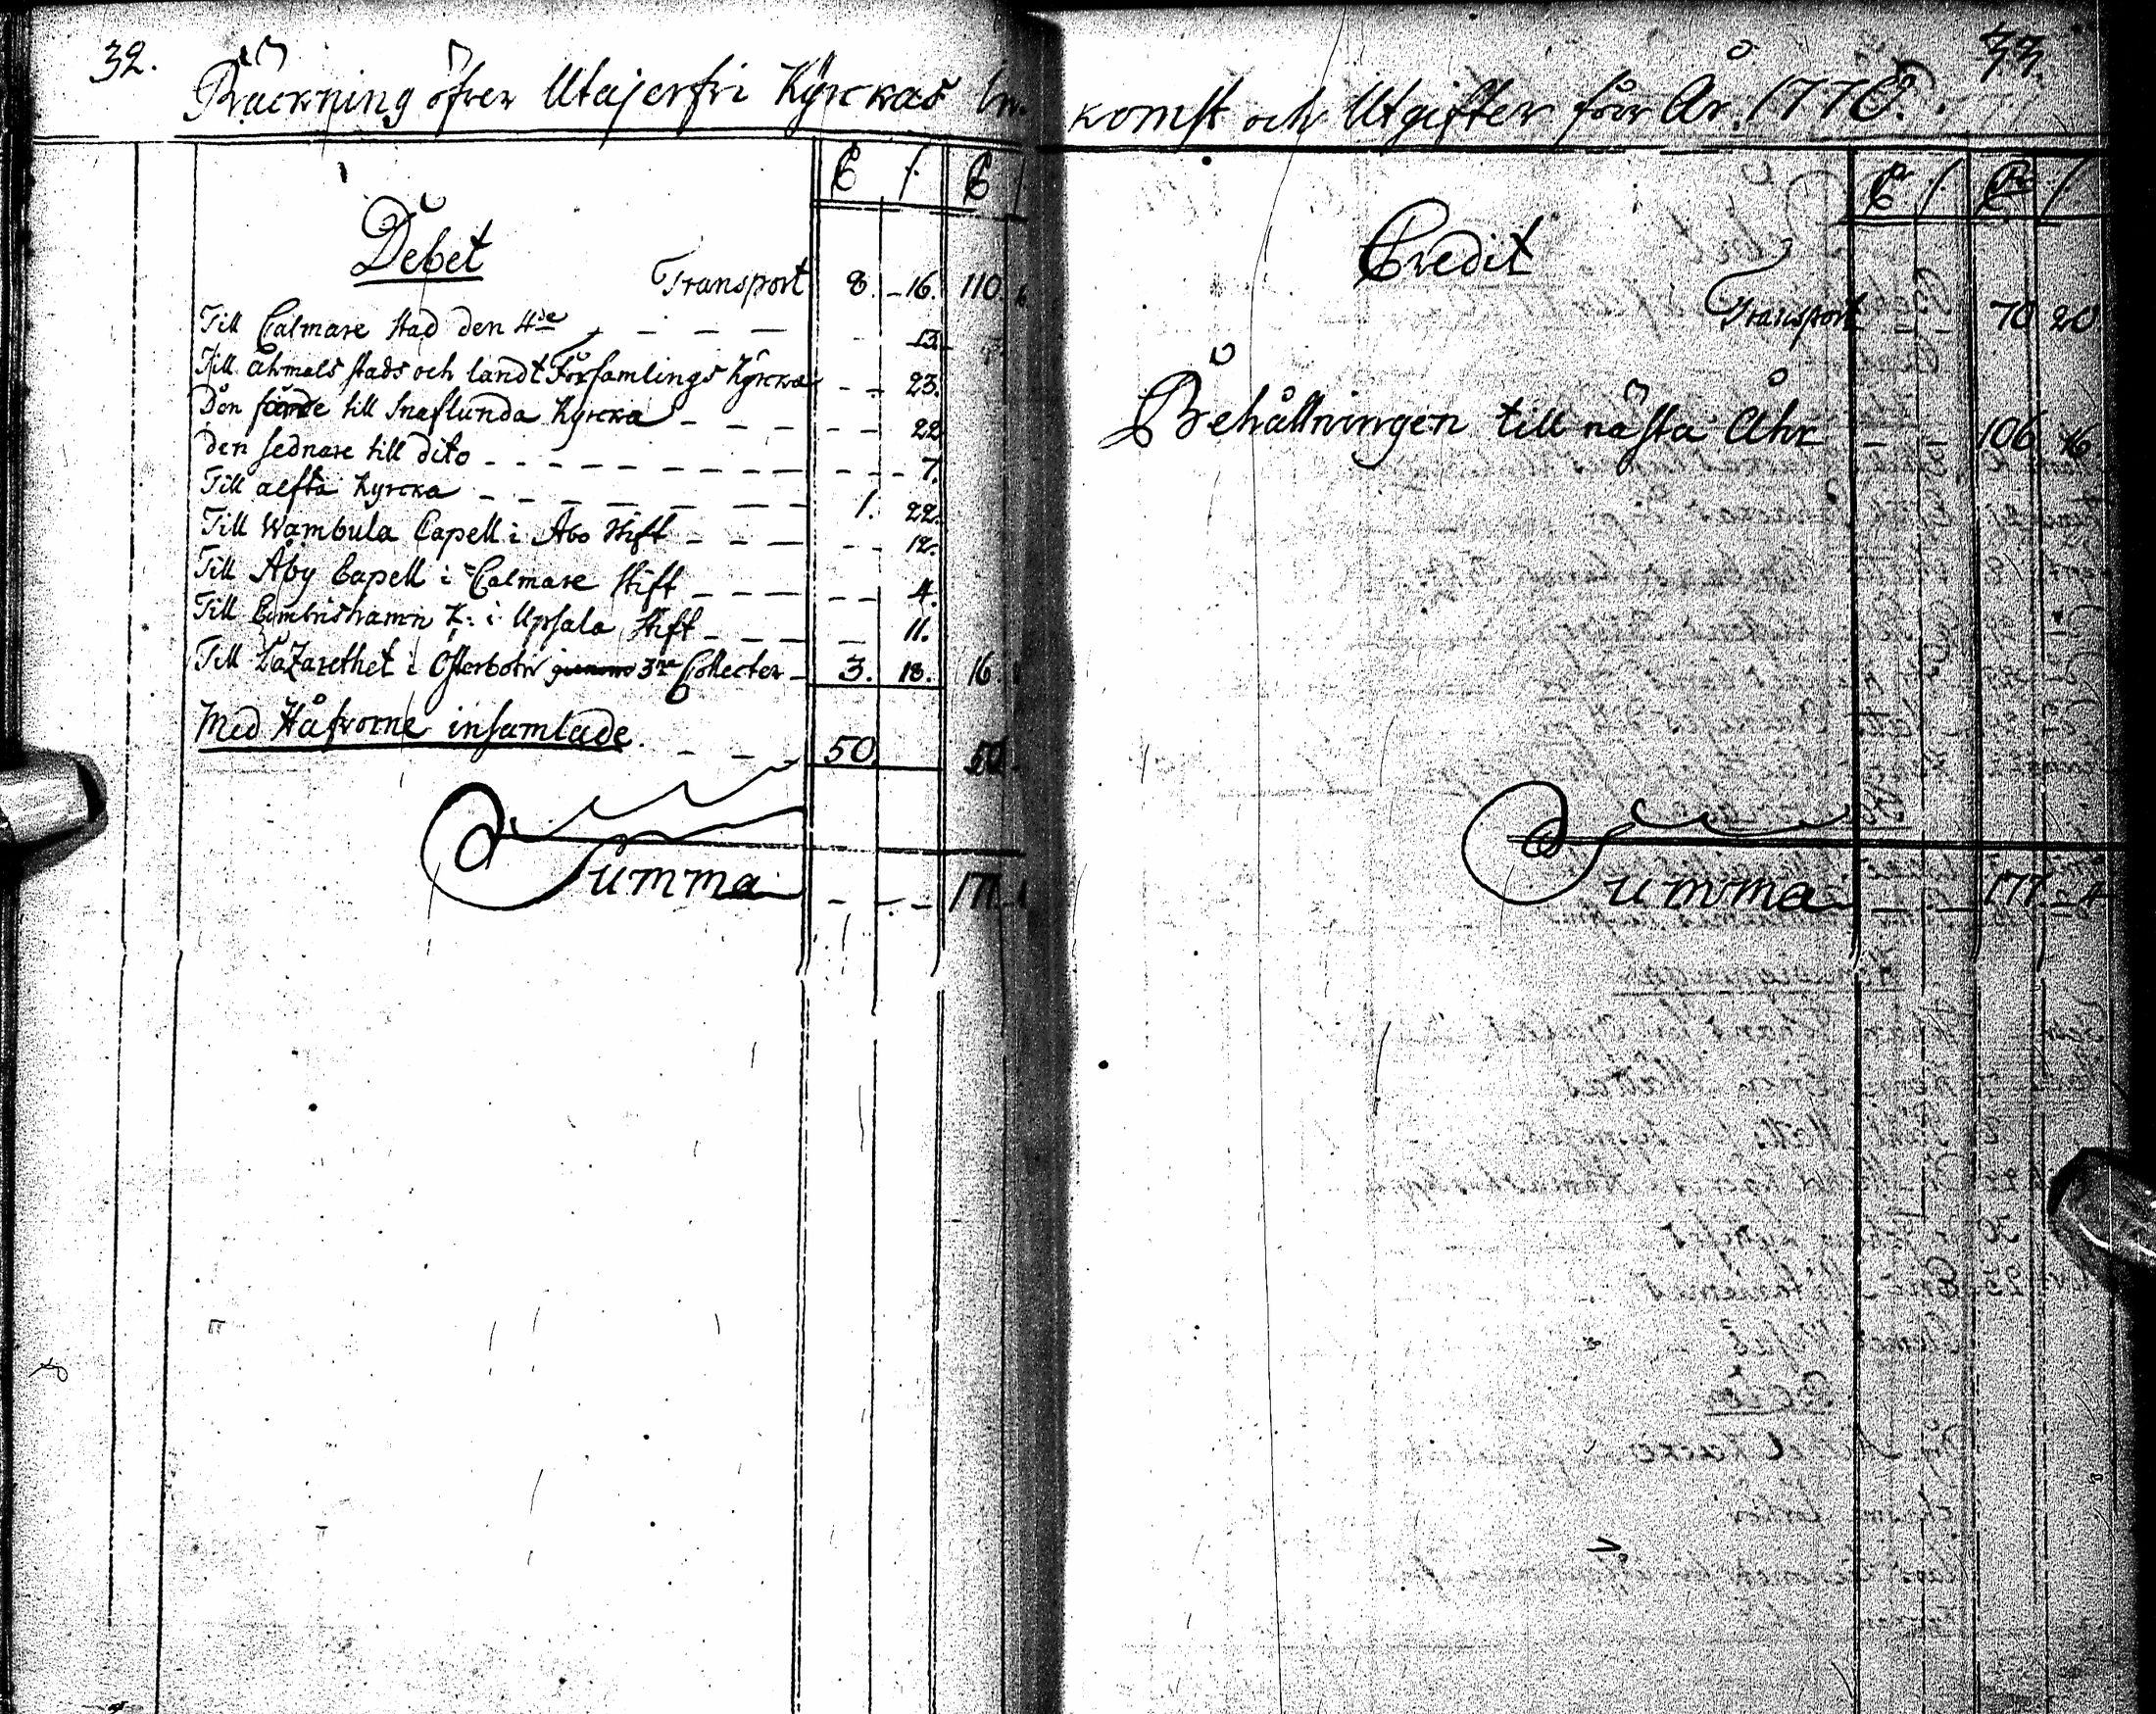 32.
Räckning öfver Utajerfvi Kyrckas In-
Debet
Transport 8. 16. 110
Till Calmare stad den 4de 13.
Till Åhmåls stads och landt Församlings Kyrcka 23.
Den förre till Snaflunda Kyrcka 22
den sednare till dito 7.
Till alfta Kyrcka 1. 22.
Till Wambula Capell i Åbo Stift 12.
Till Åby Capell i Calmare Stift 4.
Till K: i Upsala Stift 11.
Till Lazarethet i Österbotn 3ne Collecter 3. 18. 16
Med Håfvorne insamlade 50 50
Summa 177
33.
komst och Utgifter för År 1770.
Credit
Transport 70 20
Behållningen till nästa Åhr 106 16
Summa 177 4